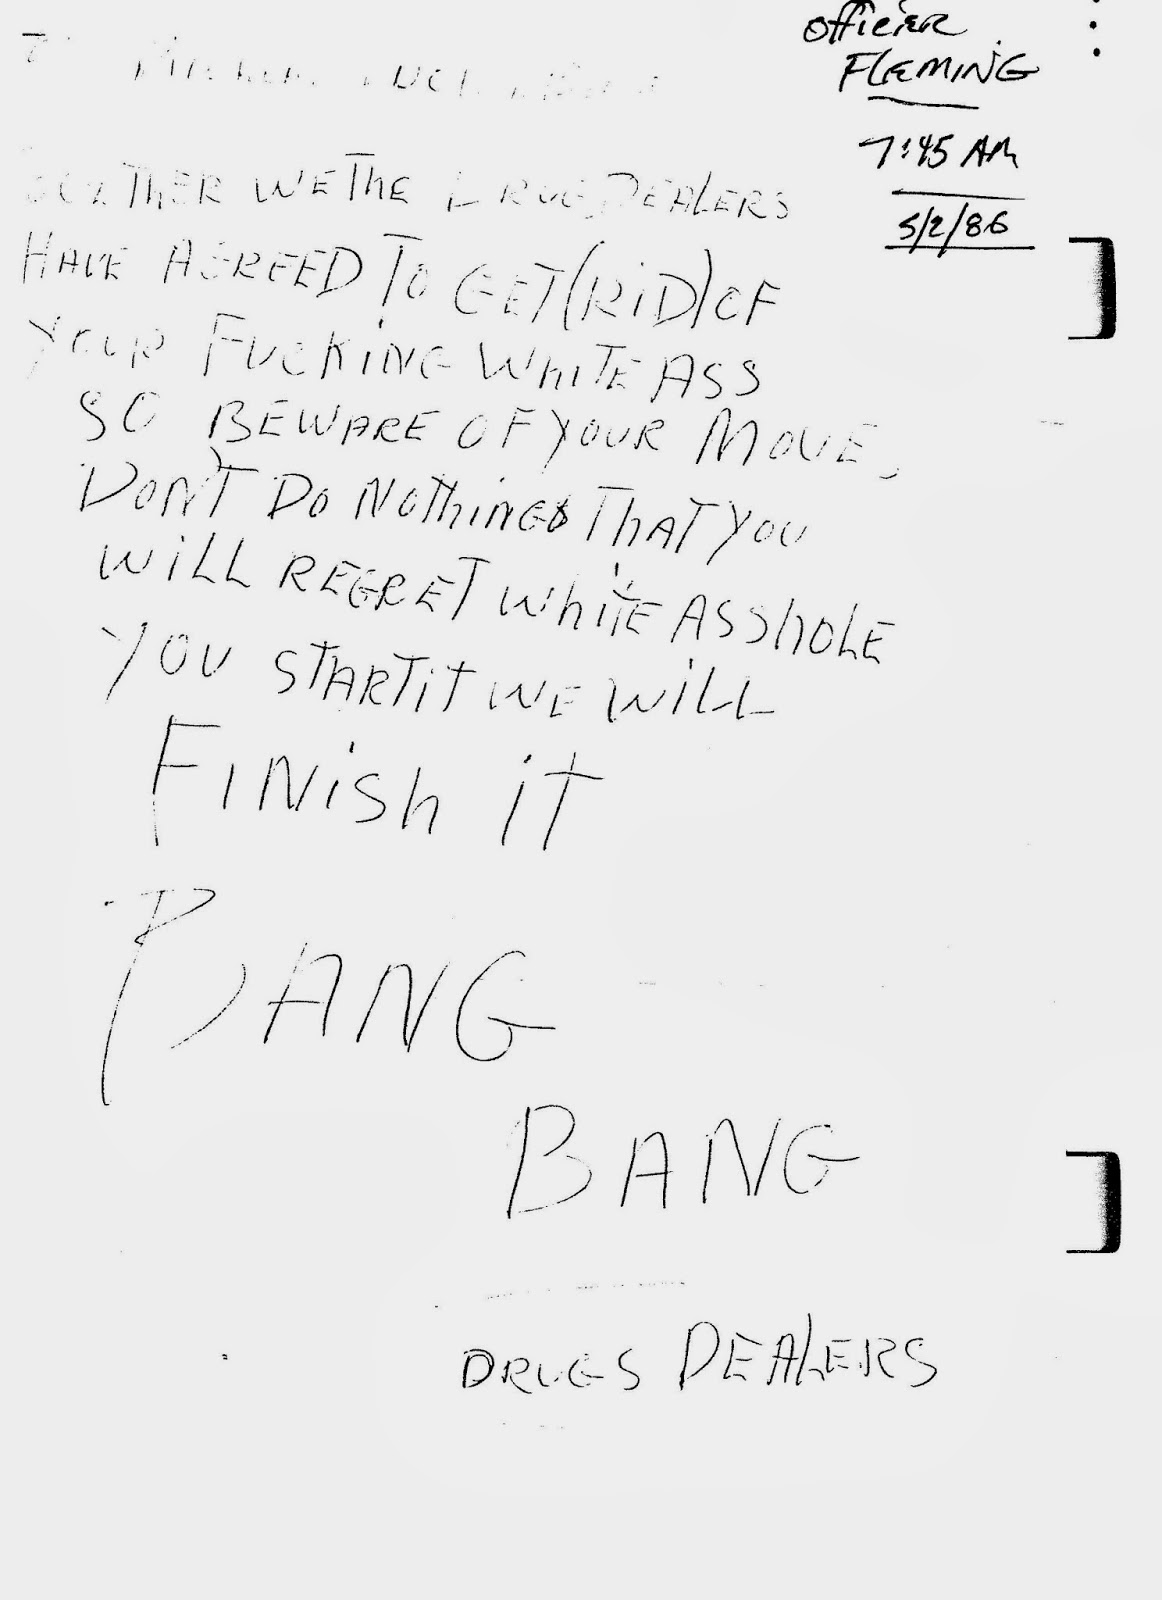 officier
FLEMING
7:45 AM
5/2/86
WE THE DRUGS DEALERS
HAVE AGREED TO GET (RID) OF
YOUR FUCKING WHITE ASS
SO BEWARE OF YOUR MOVE,
DON'T DO NOTHING THAT YOU
WILL REGRET WHITE ASSHOLE
YOU START IT WE WILL
FINISH IT
BANG
BANG
DRUGS DEALERS